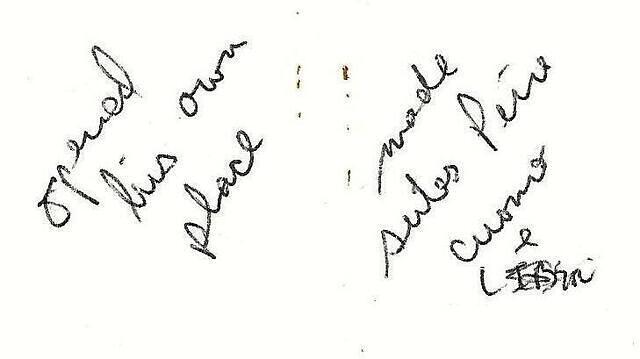 opened
his own
place
made
sutes Peire
cuomo
&